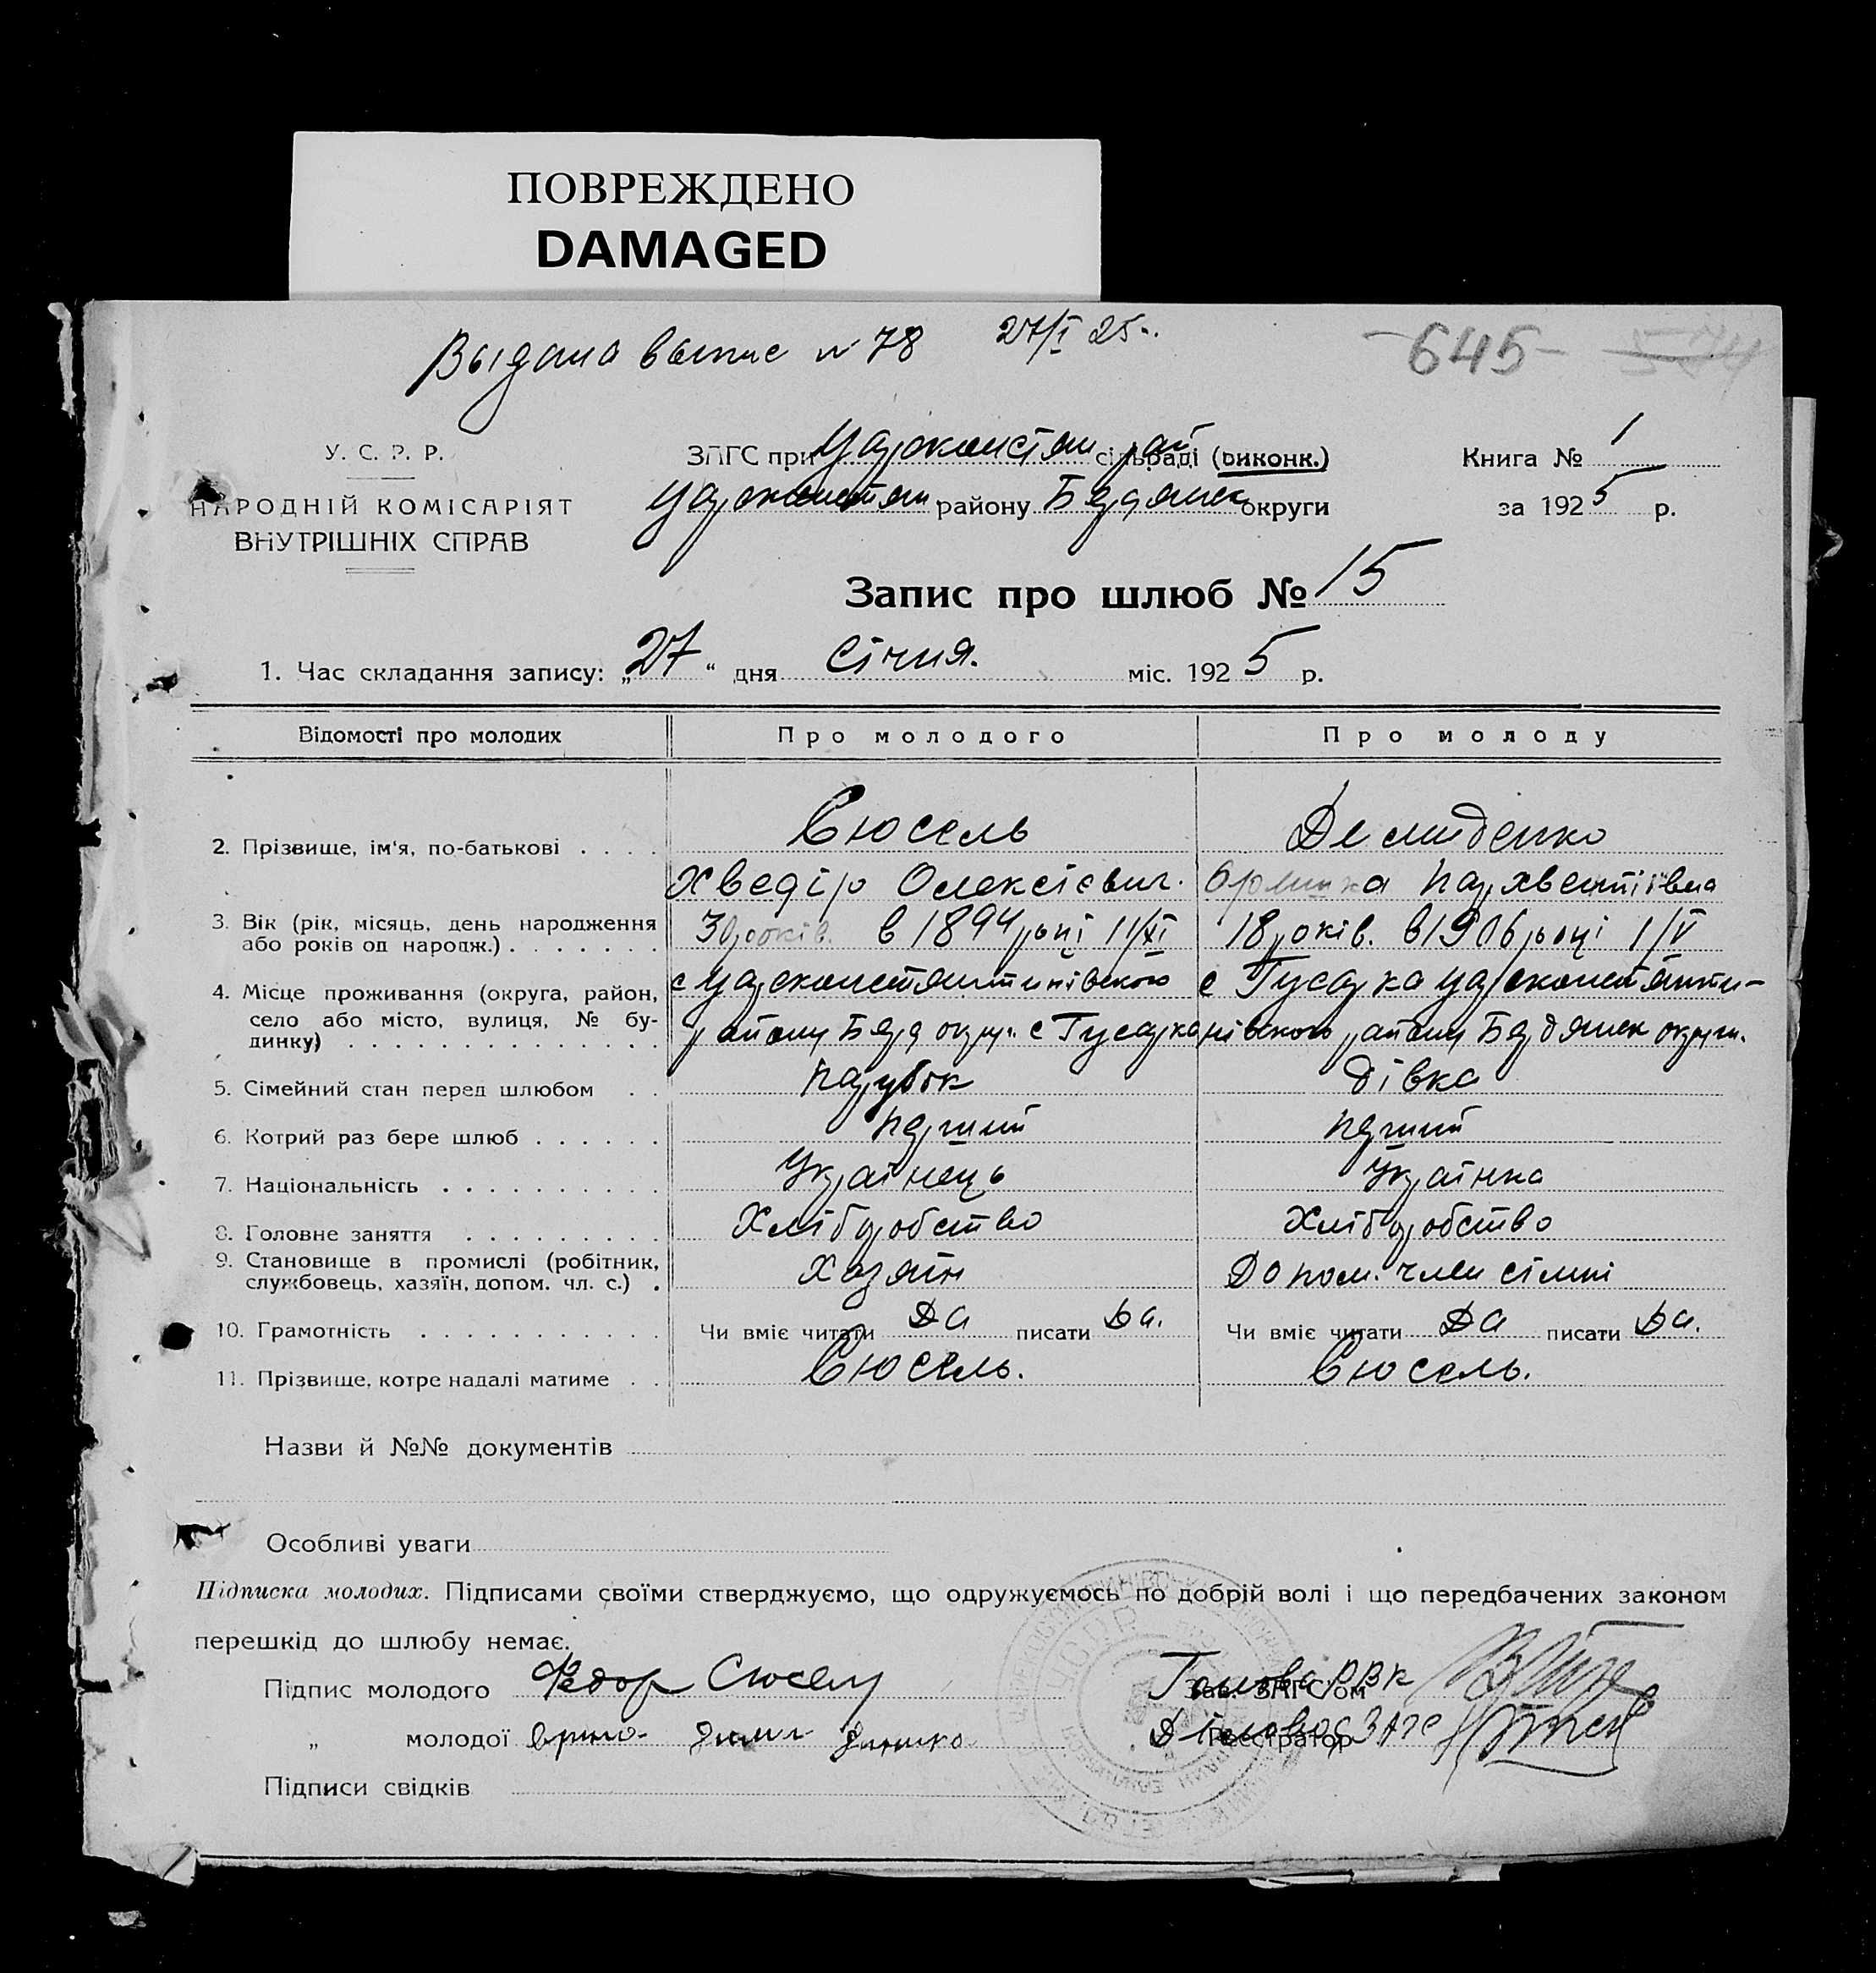 ПОВРЕЖДЕНО
DAMAGED
Выдана выпис N 78 27/I 25.
-645- 574
У. С. Р. Р.
НАРОДНІЙ КОМІСАРІЯТ
ВНУТРІШНІХ СПРАВ
ЗАГС при Царконстан рай сільраді (виконк.)
Царконстан району Бердянск округи
Книга № 1
за 1925 р.
Запис про шлюб № 15
1. Час складання запису: „27“ дня Січня. міс. 1925 р.
Відомості про молодих Про молодого Про молоду
2. Прізвище, ім'я, по-батькові . . . . Сюсель Демиденко
Хведір Олексієвич. Пархвентіївна
3. Вік (рік, місяць, день народження
або років од народж.) . . . . . . . 30 років. в 1894 році 11/XI 18 років. в 1906 році 1/V
4. Місце проживання (округа, район,
село або місто, вулиця, № бу-
динку) . . . . . . . . . . . . . . с Царсконстянтинівського району Берд окру. с Гусарка
с Гусарка Царсконстянти-нівського району Бердянск округи.
5. Сімейний стан перед шлюбом . . парубок дівка
6. Котрий раз бере шлюб . . . . . . перший перший
7. Національність . . . . . . . . . . Українець Українка
8. Головне заняття . . . . . . . . . Хліборобство Хліборобство
9. Становище в промислі (робітник,
службовець, хазяїн, допом. чл. с.) . Хазяїн Допом. член сімні
10. Грамотність . . . . . . . . . . . Чи вміє читати Да писати Да. Чи вміє читати Да писати Да.
11. Прізвище, котре надалі матиме . . Сюсель. Сюсель.
Назви й №№ документів
Особливі уваги
Підписка молодих. Підписами своїми стверджуємо, що одружуємось по добрій волі і що передбачених законом
перешкід до шлюбу немає.
Підпис молодого Федор Сюсель Голова РВК Зав. ЗАГС'ом
„ молодої Діловод ЗАГС Реєстратор
Підписи свідків